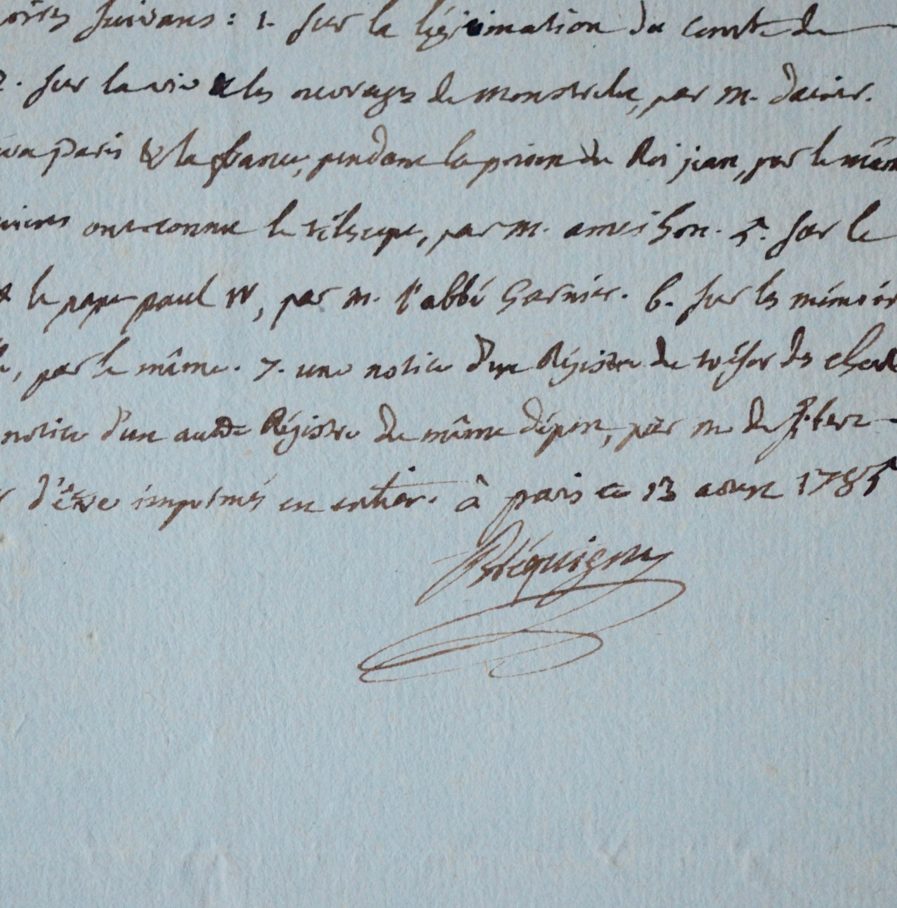 oires suivans : 1. sur la légitimation du comte de
2. sur la vie & les ouvrages de monstrelet, par m. dacier.
Paris & la france, pendant la prison du Roi jean, par le mêm
ont connu le télescope, par m. ameilhon. 5. sur le
& le pape paul IV, par m. l'abbé Garnier. 6. sur les mémoir
, par le même. 7. une notice d'un Régistre du trésor des char
notice d'un autre Régistre du même dépôt, par m. de
d'être imprimés en entier. à paris ce 13 aoust 1785
Bréquigny